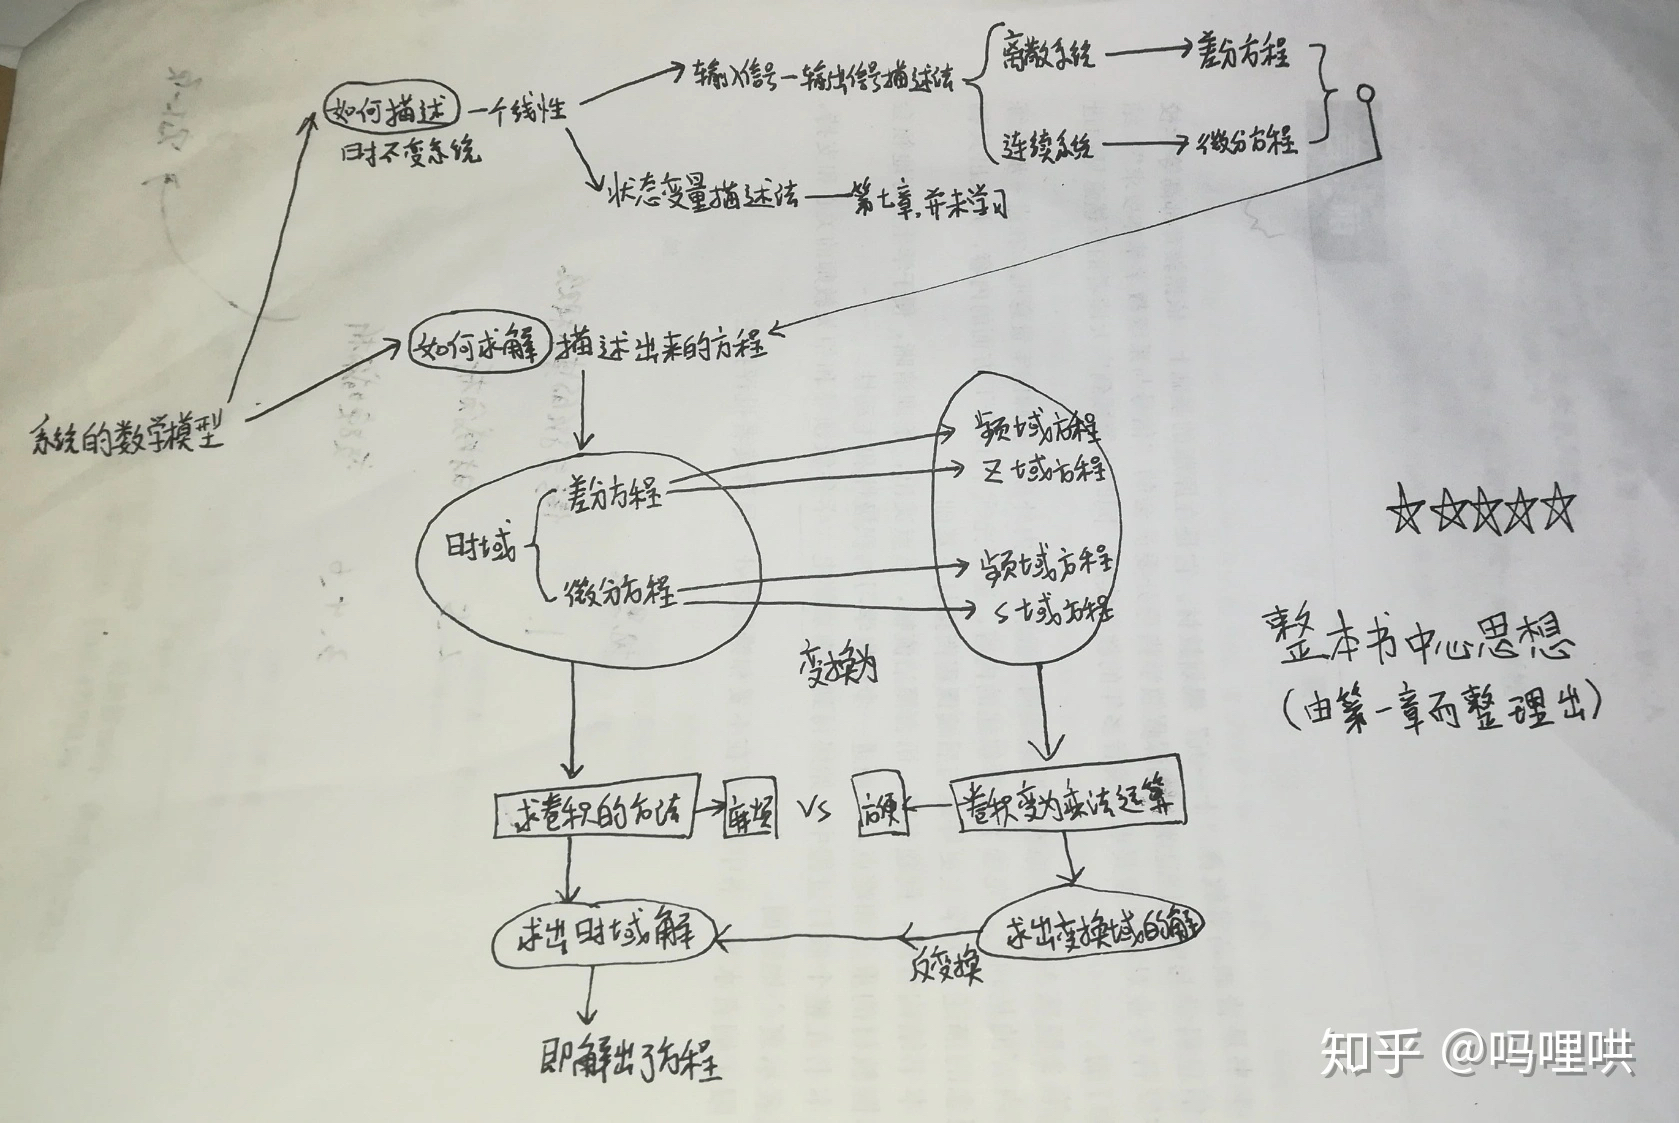 如何描述一个线性
时不变系统
输入信号—输出信号描述法
离散系统
差分方程
连续系统
微分方程
状态变量描述法——第七章,并未学习
如何求解描述出来的方程
系统的数学模型
时域
差分方程
微分方程
频域方程
Z域方程
频域方程
S域方程
变换为
☆☆☆☆☆
整本书中心思想
(由第一章而整理出)
求卷积的方法
麻烦
VS
方便
卷积变为乘法运算
求出时域解
反变换
求出变换域的解
即解出了方程
知乎 @吗哩哄